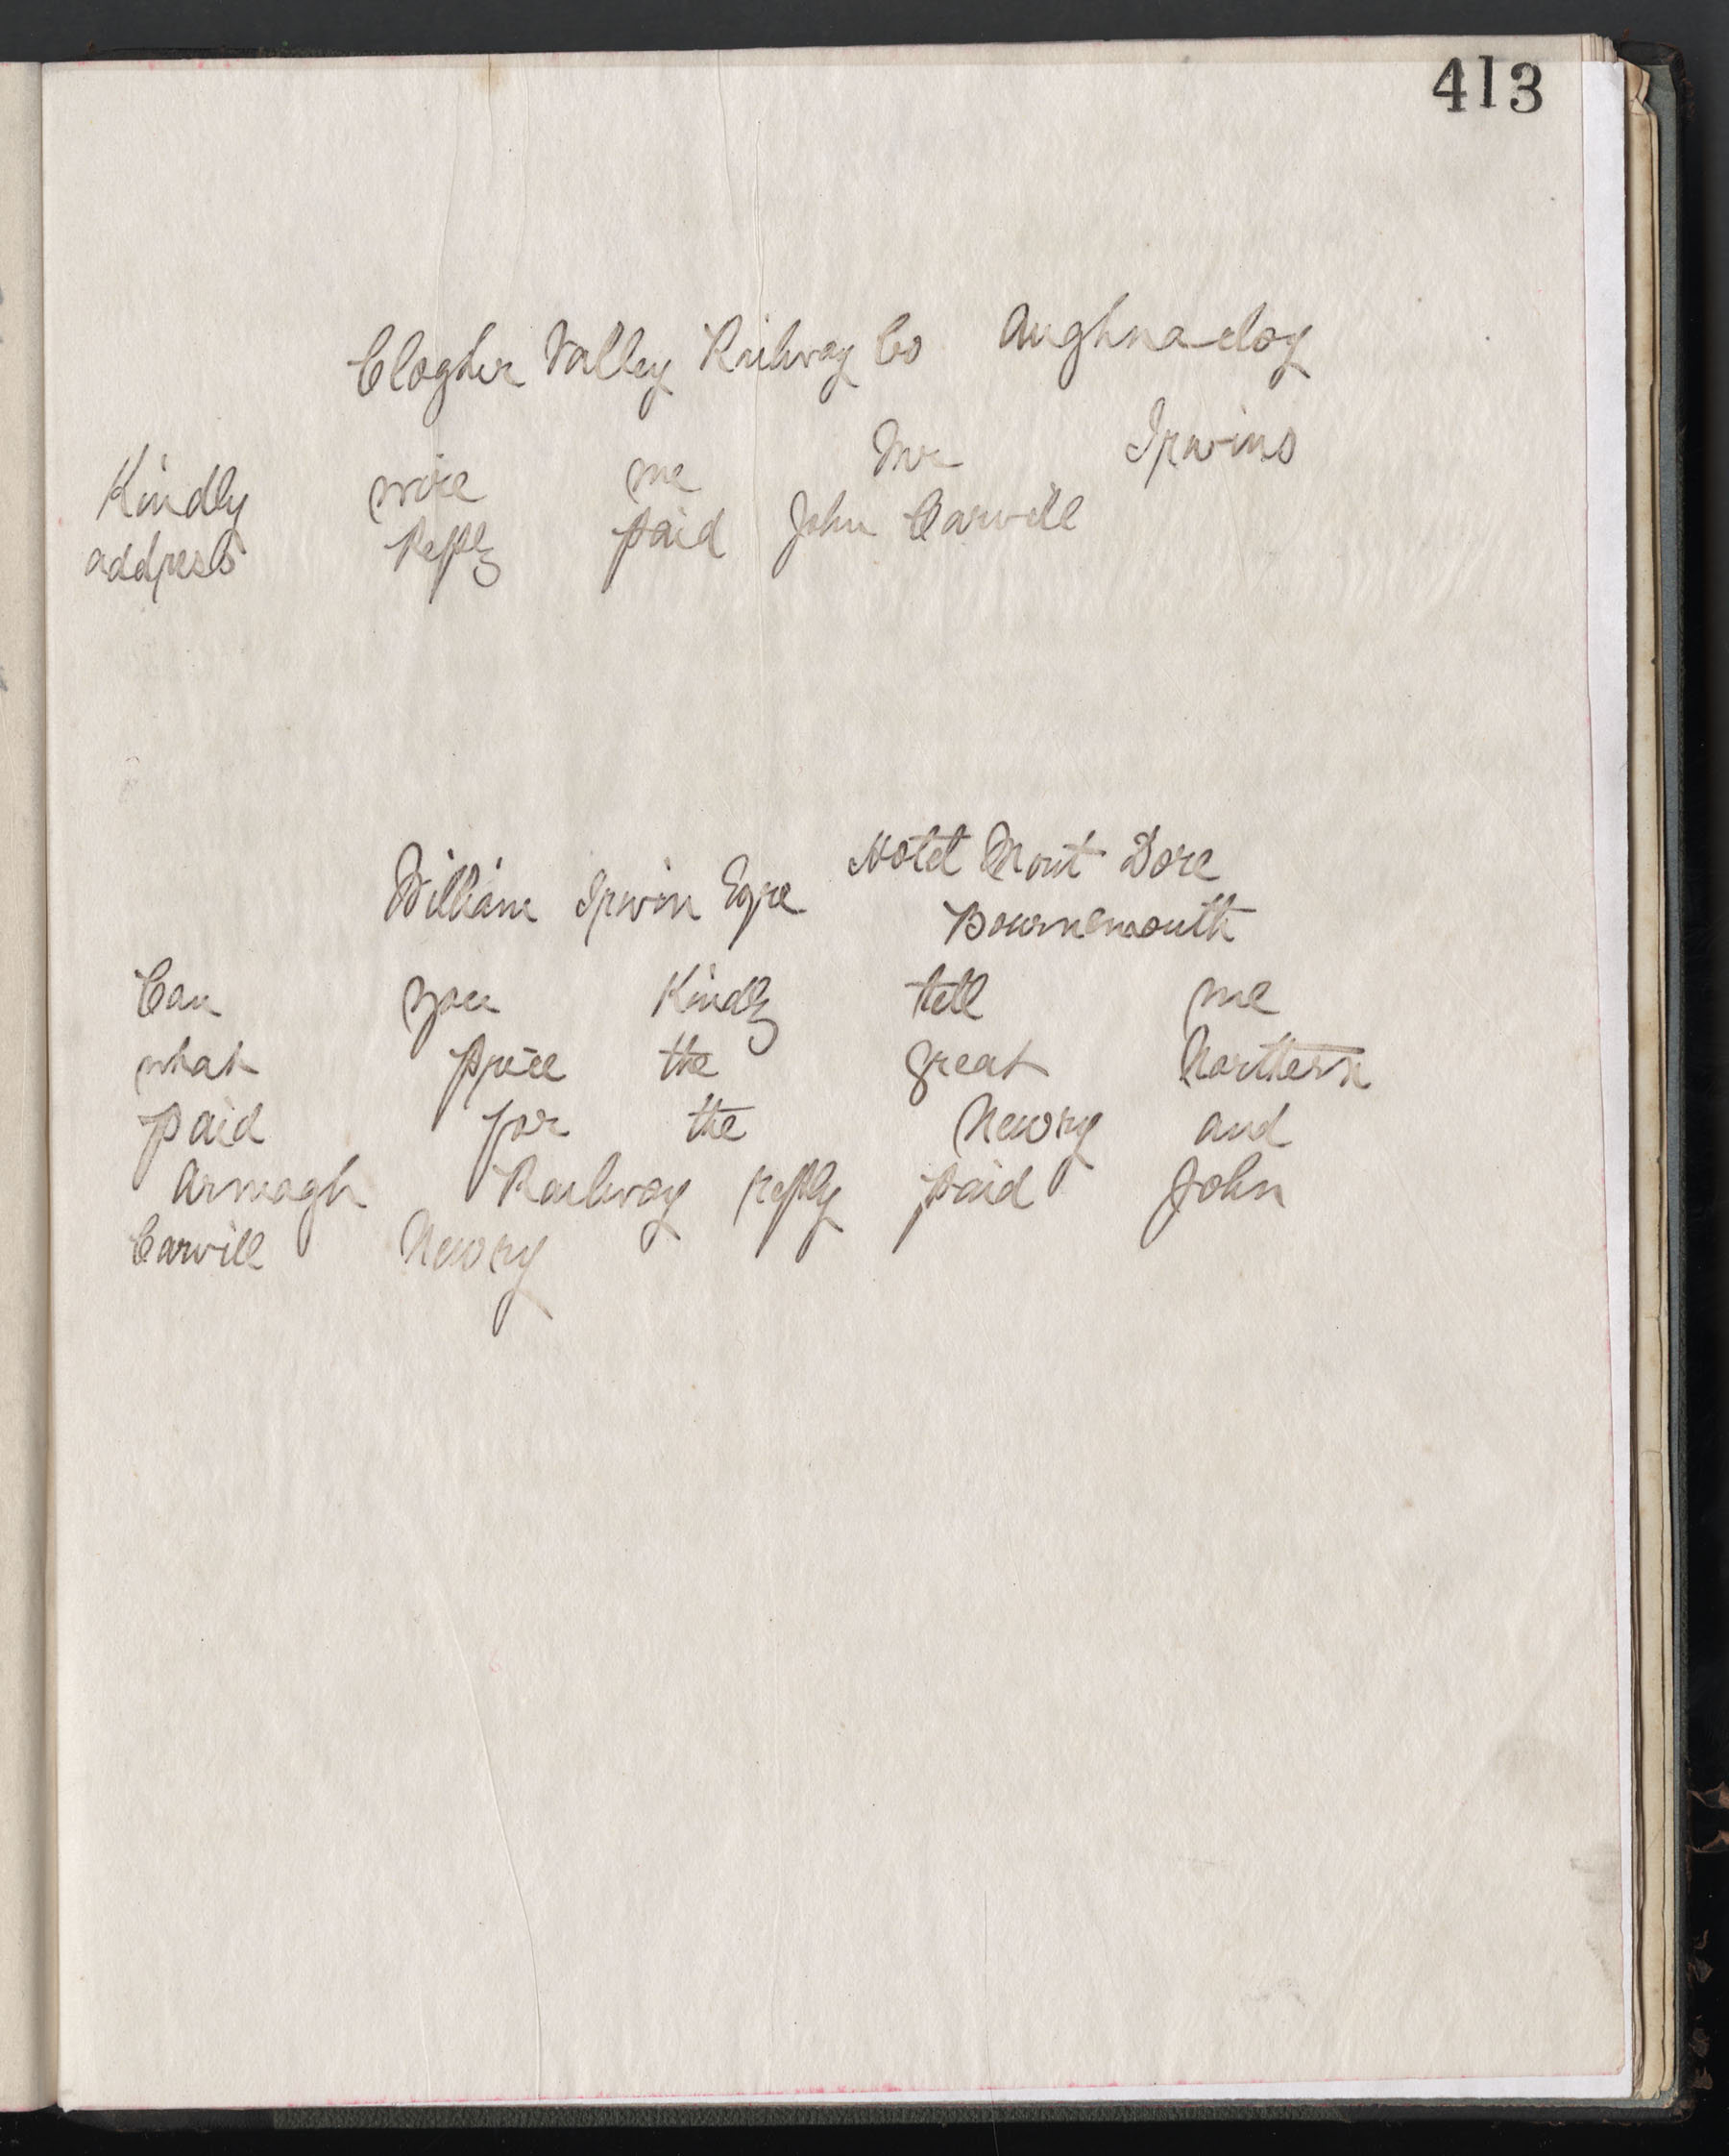 413
Clogher Valley Railway Co Aughnacloy
Kindly wire me Mr Irwins
address Reply paid John Carvill
William Irwin Esqre Hotel Mont Dore
Bournemouth
Can you Kindly tell me
what price the great Northern
paid for the Newry and
Armagh Railway reply paid John
Carvill Newry